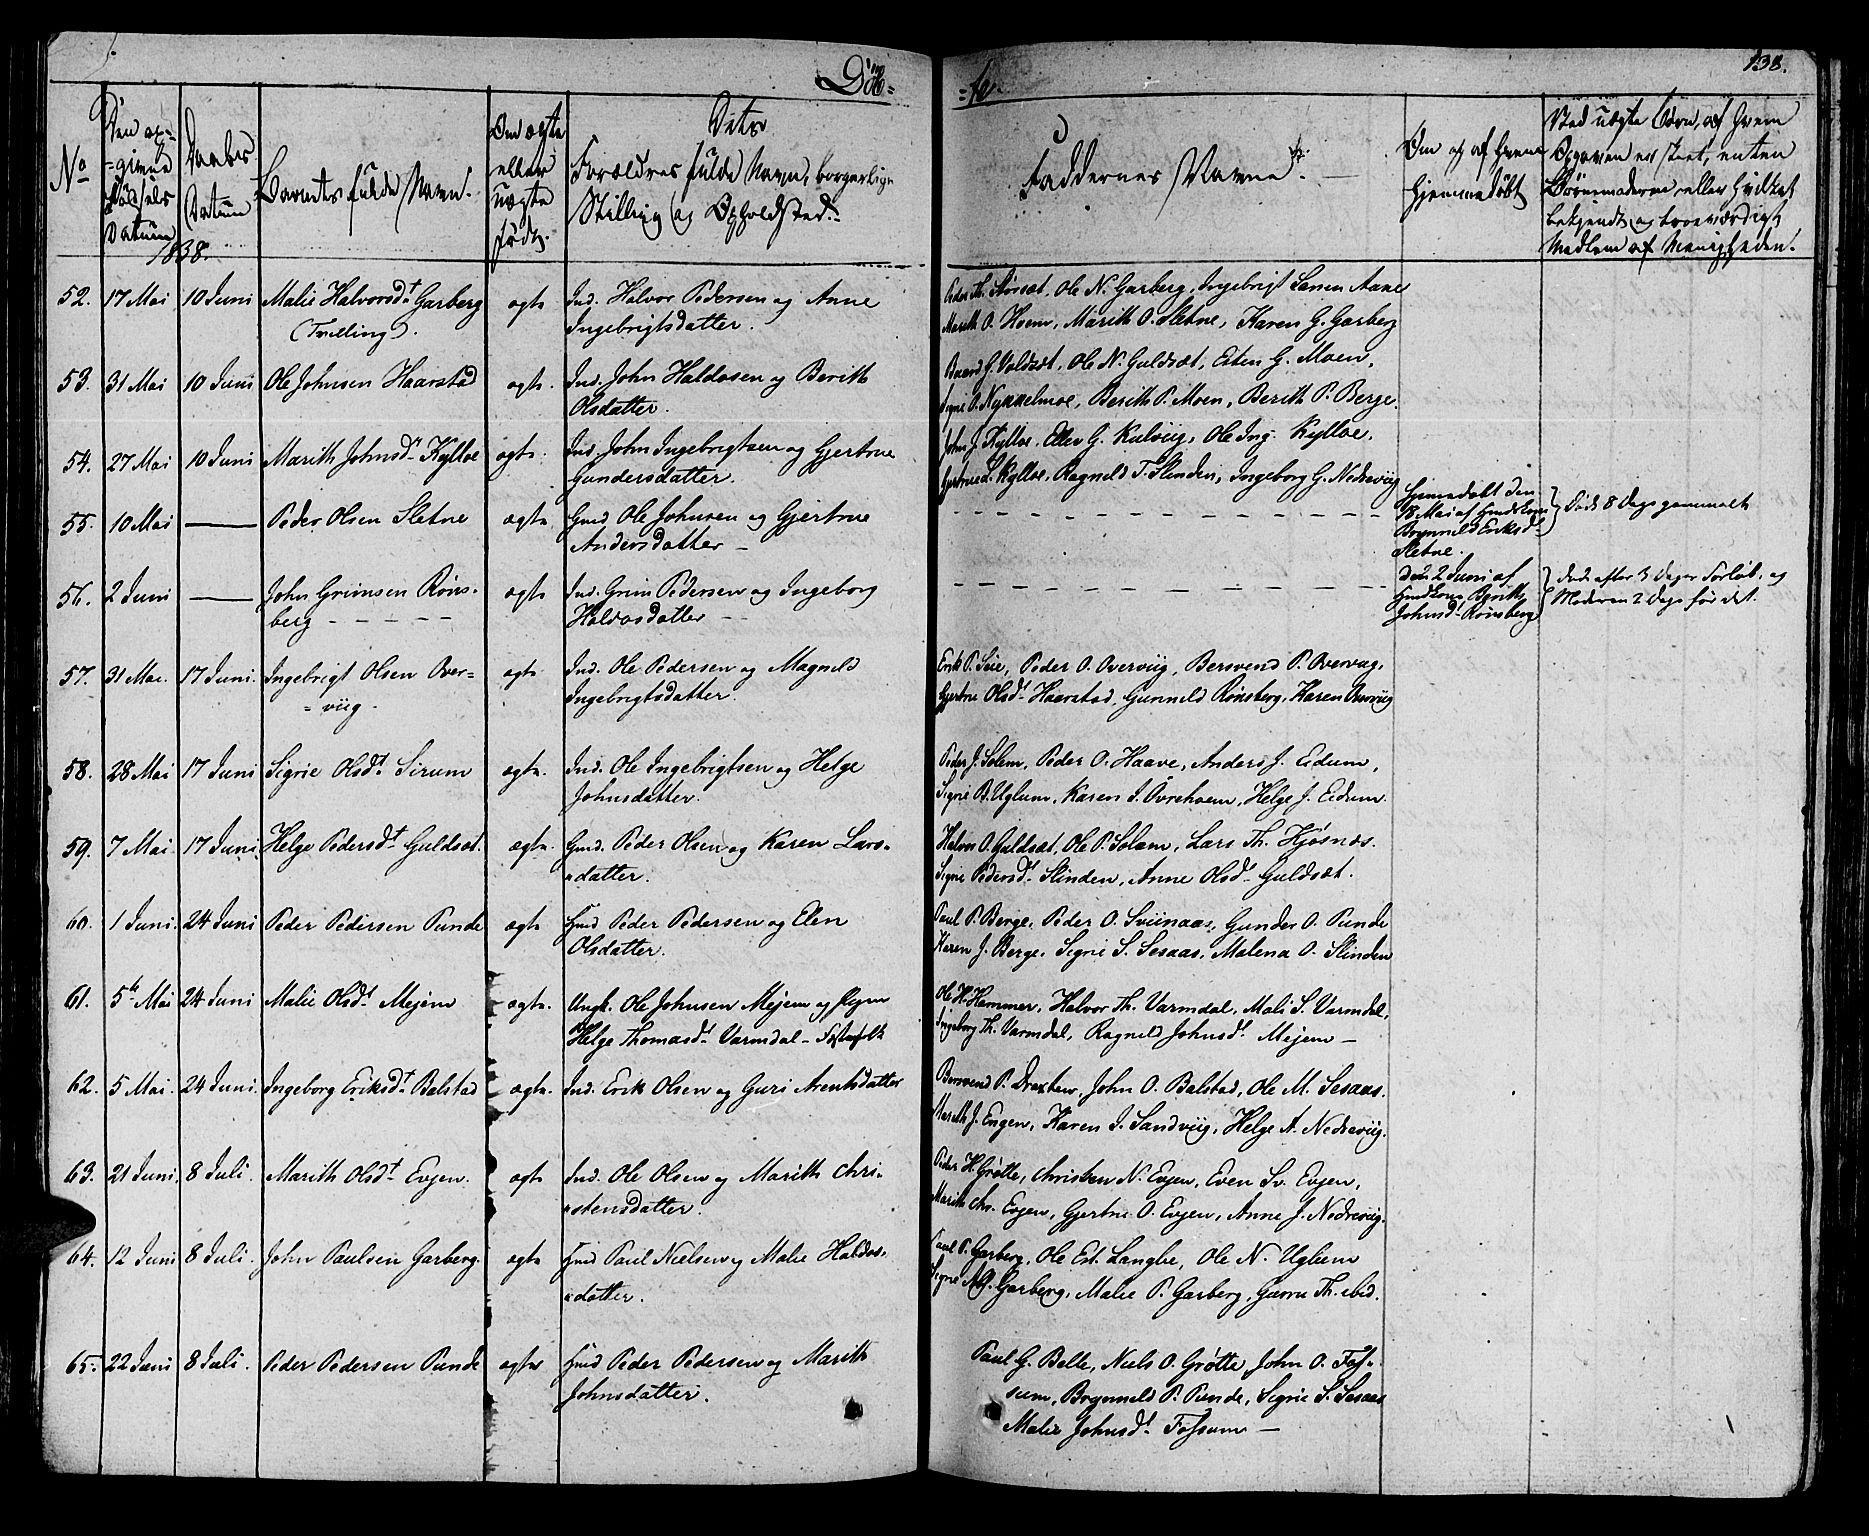 Døb=
=te.
138.
No
Den op=
=givne
Fødsels
Datum
Daabs
Datum
Barnets fulde Navn.
Om ægte
eller
uægte
født.
Dets
Forældres fulde Navn, borgerlige
Stilling og Opholdsted.
Faddernes Navne.
Om og af hvem
hjemmedøbt
Ved uægte Børn, af hvem
Opgaven er skeet, enten
Børnemoderen eller hvilket
bekjendt og troværdigt
Medlem af Menigheden.
1838.
52. 17 Mai 10 Juni Malie Halvorsdt Garberg ægte Ind. Halvor Pedersen og Anne
(Tvilling). Ingebrigtsdatter.
Peder Th. Størset, Ole N. Garberg, Ingebrigt Aune
Marith O. Hoem, Marith O. Sletne, Karen G. Garberg
53. 31 Mai 10 Juni Ole Johnsen Haarstad ægte Ind. John Haldosen og Berith
Olsdatter.
Baard J. Voldset, Ole N. Guldsæt, Esten G. Moen,
Signe O. Nykkelmoe, Berith P. Moen, Berith P. Berge.
54. 27 Mai 10 Juni Marith Johnsdr Kylloe ægte Ind. John Ingebrigtsen og Gjertrue
Gundersdatter.
John J. Kylloe, Ellev G. Kulviig, Ole Ing. Kylloe,
Gjertrue L. Kylloe, Ragneld T. Slinden, Ingeborg G. Nedreviig
55. 10 Mai — Peder Olsen Sletne ægte Gmd. Ole Johnsen og Gjertrue
Andersdatter —
Hjemmedøbt den
18 Mai af Huuskone
Brynnild Eriksdt
Sletne.
Død 8 Dage gammelt
56. 2 Juni — John Grimsen Røns=
berg - - - - - ægte Ind. Grim Pedersen og Ingeborg
Haldosdatter - -
den 2 Juni af
Huuskone Berith
Johnsdt Rønsberg
Død efter 3 Dages Forløb, og
Moderen 2 Dage før det.
57. 31 Mai. 17 Juni. Ingebrigt Olsen Over=
= viig. ægte Ind. Ole Pedersen og Magnild
Ingebrigtsdatter.
Erik P. Seie, Peder O. Overviig, Bersvend P. Overvug,
Gjertrue Olsdt Haarstad, Gunneld Rønsberg, Karen Overviig
58. 28 Mai 17 Juni Sigrie Olsdt Sirum ægte. Ind. Ole Ingebrigtsen og Helge
Johnsdatter.
Peder J. Solem, Peder O. Haave, Anders J. Eidum,
Sigrie B. Uglum, Karen I. Øvrehoem, Helge J. Eidum.
59. 7 Mai 17 Juni. Helge Pedersdt Guldsæt. ægte. Gmd. Peder Olsen og Karen Lars=
=datter.
Halvor O. Guldsæt, Ole P. Solem, Lars Th. Kjøsnæs.
Signe Pedersdt Slinden, Anne Olsdt Guldsæt.
60. 1 Juni. 24 Juni Peder Pedersen Punde ægte Hmd Peder Pedersen og Elen
Olsdatter.
Paul P. Berge, Peder O. Sviinaas, Gunder O. Punde
Karen J. Berge, Sigrie S. Sesaas, Malena O. Slinden
61. 5te Mai 24 Juni Malie Olsdt Mejem ægte. Ungk. Ole Johnsen Mejem og Pigen
Helge Thomasdt Varmdal - Fæstefolk
Ole H. Hammer, Halvor Th. Varmdal, Mali S. Varmdal,
Ingeborg Th. Varmdal, Ragnild Johnsdt Mejem —
62. 5 Mai. 24 Juni. Ingeborg Eriksdt Balstad ægte. Ind. Erik Olsen og Guri Arentsdatter
Bersvend P. Draxten, John O. Balstad, Ole M. Sesaas.
Marith J. Engen, Karen I. Sandviig, Helge A. Nedreviig.
63. 21 Juni. 8 Juli. Marith Olsdt Evjen. ægte Ind. Ole Olsen og Marith Chri=
=stensdatter.
Peder H. Grøtte, Christen N. Evjen, Even Sv. Evjen,
Marith Chr. Evjen, Gjertrue O. Evjen, Anne J. Nedreviig.
64. 12 Juni 8 Juli. John Paulsen Garberg. ægte Hmd Paul Nielsen og Malie Haldos=
=datter.
Paul P. Garberg, Ole Est. Langli, Ole N. Uglum
Signe G. Garberg, Malie P. Garberg, Gurru Th. ibid.
65. 22 Juni 8 Juli. Peder Pedersen Punde ægte Hmd Peder Pedersen og Marith
Johnsdatter.
Paul G. Belle, Niels O. Grøtte, John O. Fos=
sum, Brynneld P. Punde, Sigrie S. Sesaas
Malie Johnsdt Fossum —